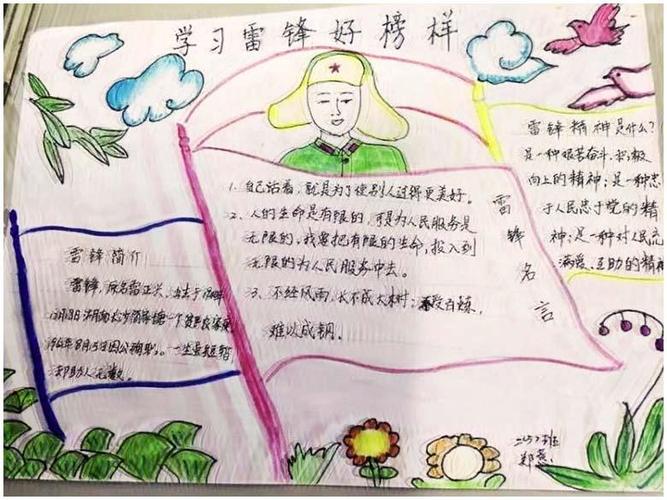 学习雷锋好榜样
雷锋简介
雷锋,原名雷正兴,出生于
因公殉职。一生虽短暂
却助人无数。
1、自己活着,就是为了使别人过得更美好。
2、人的生命是有限的,可是为人民服务是
无限的,我要把有限的生命,投入到
无限的为人民服务中去。
3、不经风雨,长不成大树;不受百炼,
难以成钢。
雷锋名言
雷锋精神是什么?
是一种艰苦奋斗,积极
向上的精神;是一种忠
于人民忠于党的精
神;是一种对人民
互助的精神
班
郑